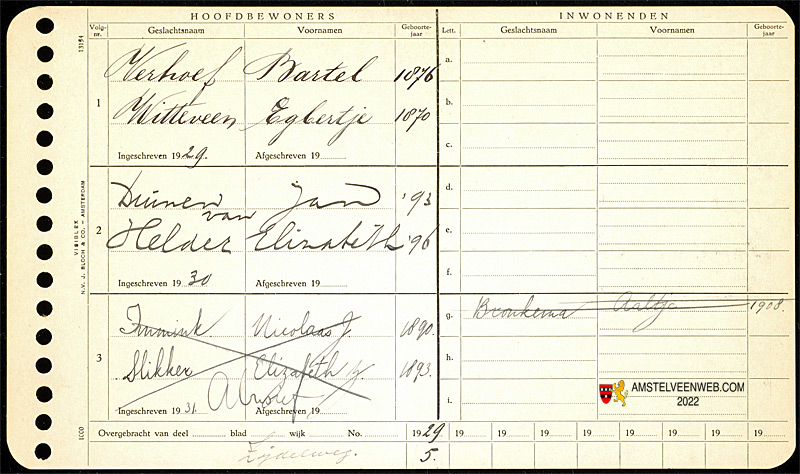 HOOFDBEWONERS
Volg-nr. Geslachtsnaam Voornamen Geboorte-jaar
1
Verhoef Bartel 1876
Witteveen Egbertje 1870
Ingeschreven 1929. Afgeschreven 19
2
Duinen van Jan '93
Helder Elizabeth '96
Ingeschreven 1930 Afgeschreven 19
3
Immink Nicolaas J. 1890.
Slikker Elizabeth J. 1893.
Ingeschreven 1931. Afgeschreven 19
INWONENDEN
Lett. Geslachtsnaam Voornamen Geboorte-jaar
a.
b.
c.
d.
e.
f.
g. Bronkema Aaltje 1908.
h.
i.
Overgebracht van deel blad wijk No. 1929. 19 19 19 19 19 19 19 19
Zijdelweg. 5.
13154
VISIBLEX
N.V. J. BLOCH & CO. - AMSTERDAM
AMSTELVEENWEB.COM
2022